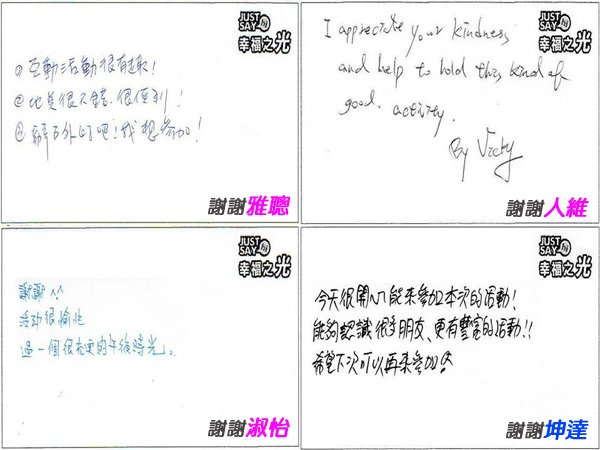 JUST
SAY
幸福之光
①互動活動很有趣！
②地點很不錯，很便利！
③辦戶外的吧！我想參加！
謝謝雅聰
JUST
SAY
幸福之光
I appreciate your kindness
and help to hold this kind of
good activity.
By Vicky
謝謝人維
JUST
SAY
幸福之光
謝謝^^
活動很愉快
過一個很充實的午後時光。
謝謝淑怡
JUST
SAY
幸福之光
今天很開心能來參加本次的活動！
能夠認識很多朋友、更有豐富的活動!!
希望下次可以再來參加
謝謝坤達